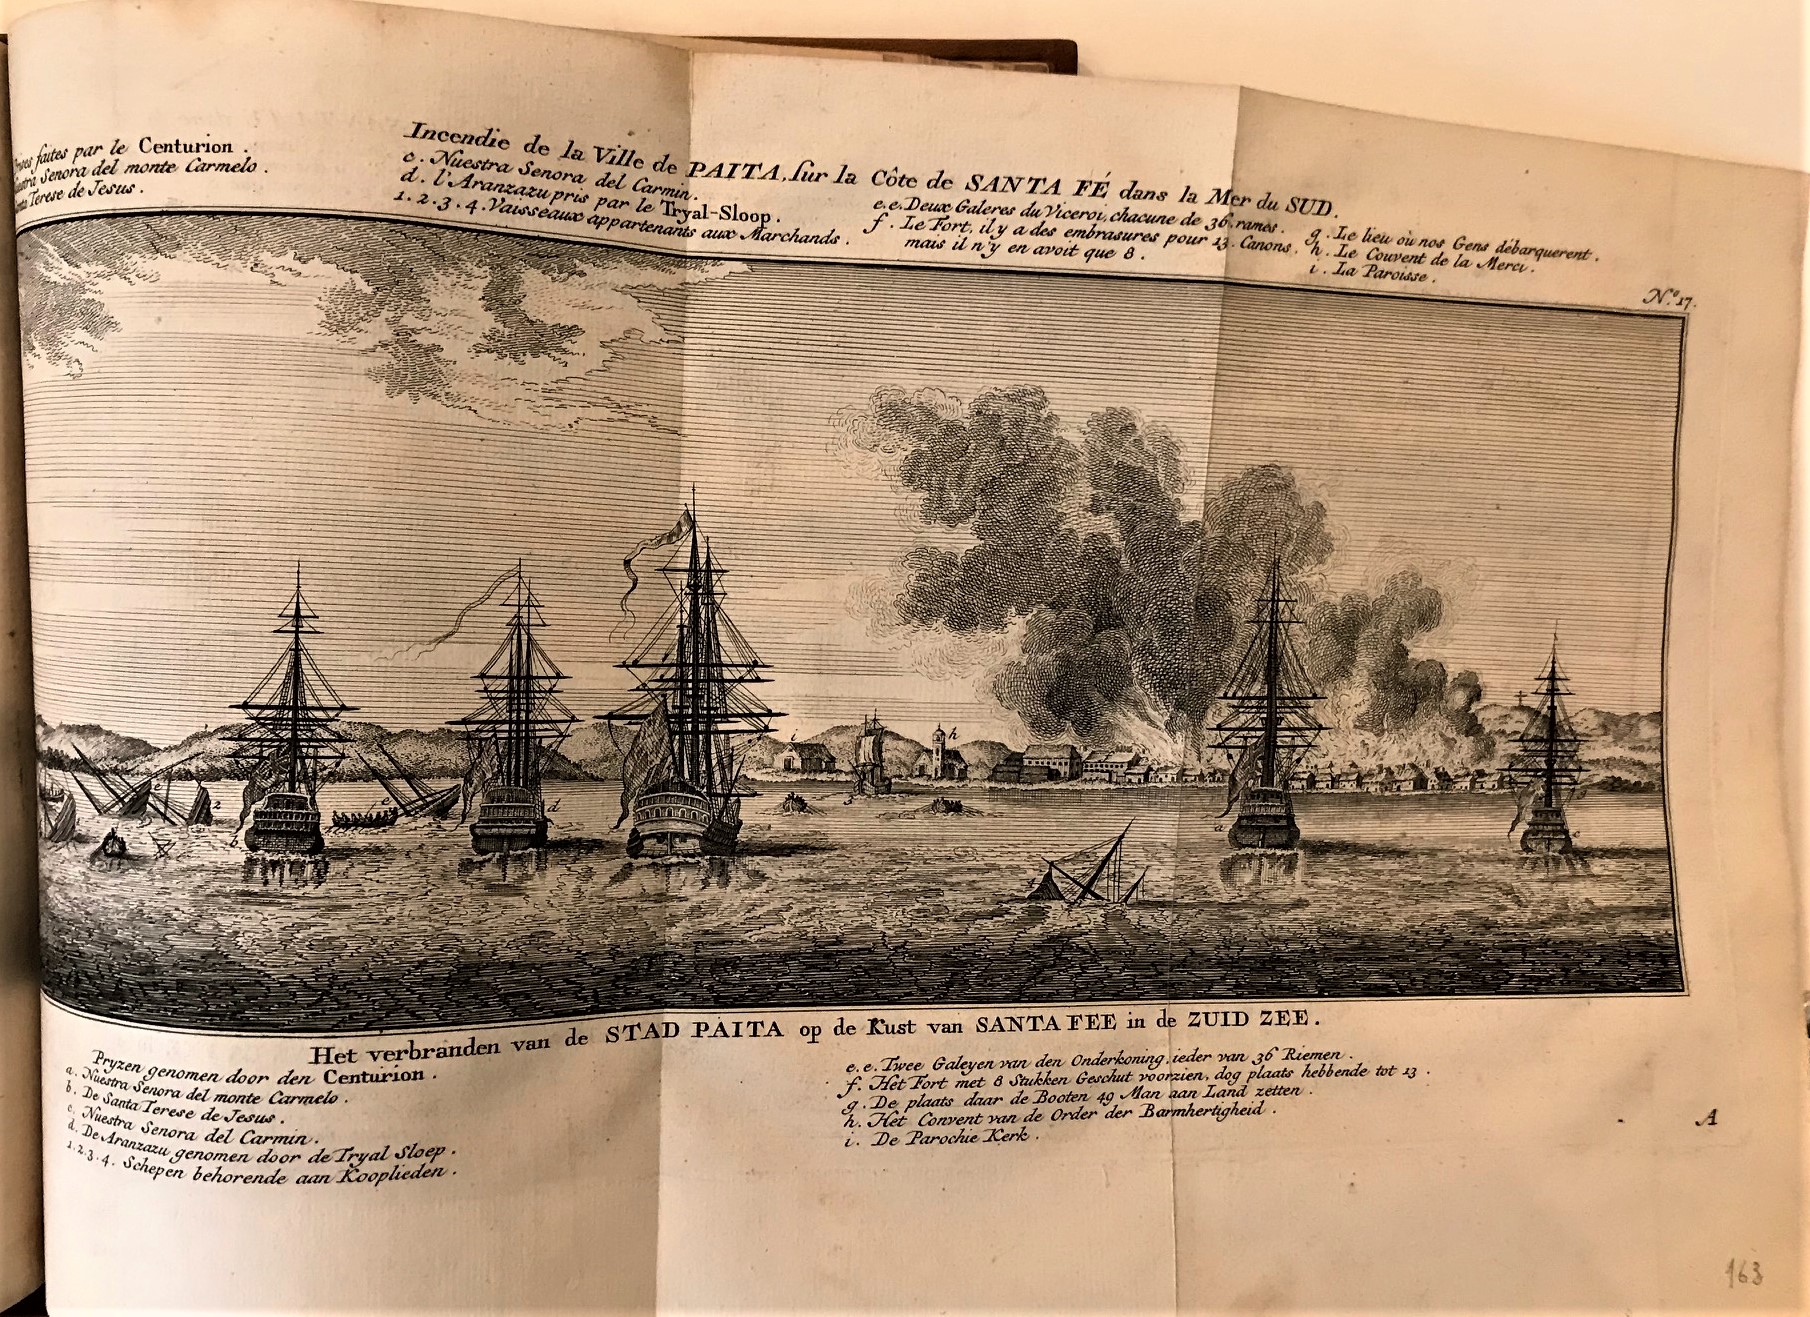 Incendie de la Ville de PAITA, sur la Côte de SANTA FÉ dans la Mer du SUD.
faites par le Centurion.
Senora del monte Carmelo.
Terese de Jesus.
c. Nuestra Senora del Carmin.
d. l'Aranzazu pris par le Tryal-Sloop.
1. 2. 3. 4. Vaisseaux appartenants aux Marchands.
e.e. Deux Galeres du Viceroi, chacune de 36. rames.
f. Le Fort, il y a des embrasures pour 13. Canons,
mais il n'y en avoit que 8.
g. Le lieu où nos Gens débarquerent.
h. Le Couvent de la Merci.
i. La Paroisse.
N.º 17.
i
h
e
e
2
d
b
3
a
c
Het verbranden van de STAD PAITA op de Kust van SANTA FEE in de ZUID ZEE.
Pryzen genomen door den Centurion.
a. Nuestra Senora del monte Carmelo.
b. De Santa Terese de Jesus.
c. Nuestra Senora del Carmin.
d. De Aranzazu genomen door de Tryal Sloep.
1. 2. 3. 4. Schepen behorende aan Kooplieden.
e.e. Twee Galeyen van den Onderkoning, ieder van 36 Riemen.
f. Het Fort met 8 Stukken Geschut voorzien, dog plaats hebbende tot 13.
g. De plaats daar de Booten 49 Man aan Land zetten.
h. Het Convent van de Order der Barmhertigheid.
i. De Parochie Kerk.
A
163